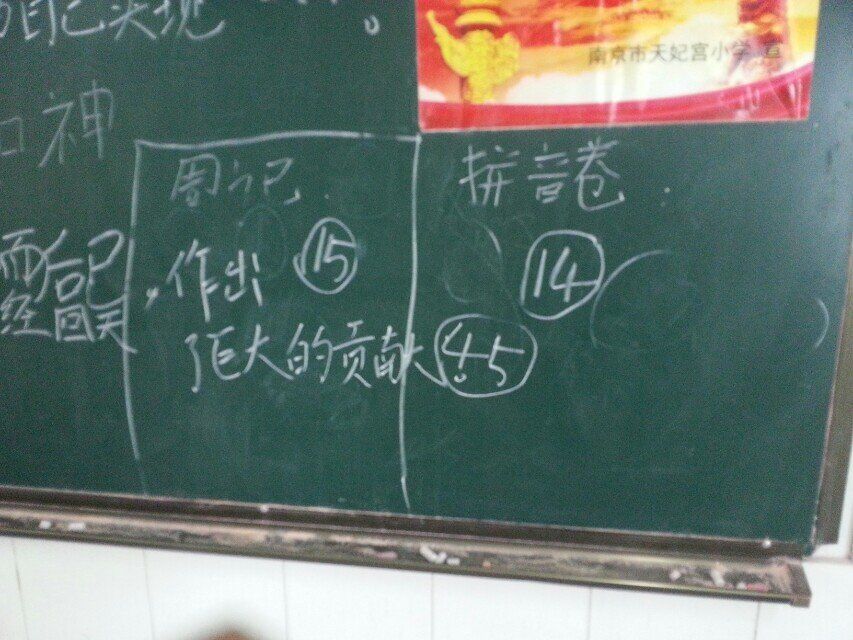 自己实现 。
南京市天妃宫小学 宣
神
周记
拼音卷
作出 ⑮
⑭
巨大的贡献
4.5